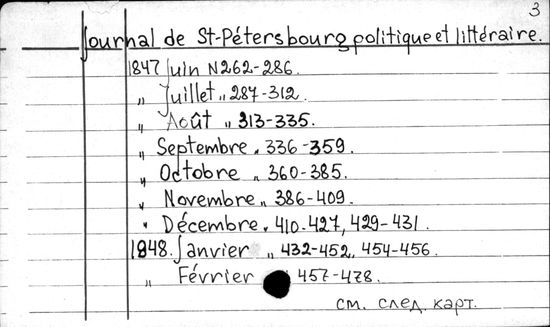 3
Journal de St-Pétersbourg politique et littéraire.
1847 Juin N262-286.
„ Juillet „ 287-312.
„ Août „ 313-335.
„ Septembre „ 336-359.
„ Octobre „ 360-385.
„ Novembre „ 386-409.
„ Décembre „ 410-427, 429-431.
1848. Janvier „ 432-452, 454-456.
„ Février „ 457-478.
см. след. карт.